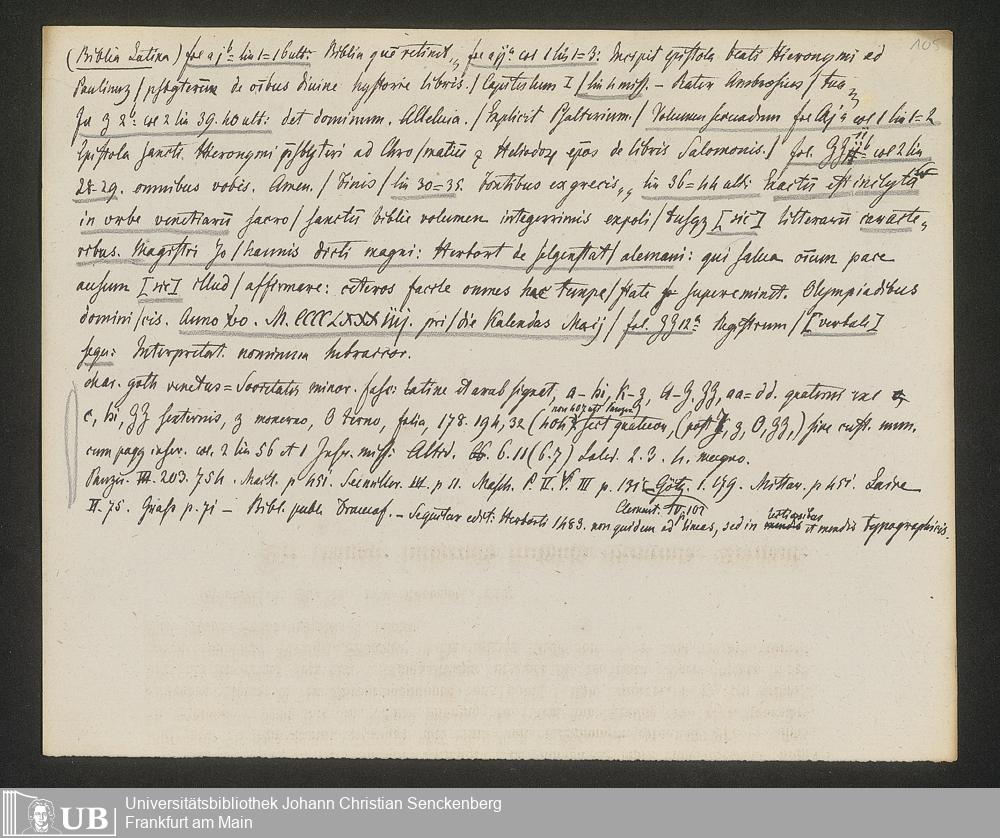 105
(Biblia Latina) fol a j b lin 1=16 ult: Biblia quē retinet fol a ij a col 1 lin 1=3: Incipit epistola beati Hieronymi ad
Paulinuz / pſbyterum de oībus divine hyſtorie libris. / Capitulum I / lin 4 miſſ. – Rater Ambroſius / tua
In z 2 b: col 2 lin 39. 40 ult: det dominum. Alleluia. / Explicit Pſalterium. / Volumen ſecundum fol Aj a col 1 lin 1=2
Epiſtola ſancti Hieronymi pſbyteri ad Chro / matiuz z Heliodoz epos de libris Salomonis. / fol. GG b col 2 lin
28-29. omnibus vobis. Amen. / Finis / lin 30=35. Fontibus ex grecis lin 36=44 ult: Exactū eſt inclyta
in vrbe venetiarū sacro / ſanctū biblie volumen integerrimis expoli / tuſqz [sic] litterarū caracte
ribus. Magiſtri Jo / hannis dicti magni: Herbort de ſelgenſtat / alemani: qui ſalua oīum pace
ausum [sic] illud / affirmare: ceteros facile omnes hac tempe / ſtate supereminet. Olympiadibus
domini / cis. Anno vo. M. CCCC LXXXiiij. pri / die Kalendas Maij / fol. GG 12 a Regiſtrum / [verbale]
sequ: Interpretat. nominum hebraicor.
char. goth venetus = Societatis minor. foſc: Latine et arab ſignat, a–bi, k–z, A–Z, GG, aa=dd. quaterni
c, hi, GG ſexternis, z O terno, folia, 178. 194, 32 (404) (poſt z, O, GG,) ſine cuſt. num.
non 407 uti Panzer
cum pagg inſcr. col. 2 lin 56 et 1 Inſcr. miſſ: Altit. 6. 11 (6. 7) Latit. 2. 3. 4. magno.
Panzer. III. 203. 754. Mait. p 451. Seemiller. III. p 11. Maſch. P. II. V. III p. 131 Götz. 1. 179. Mittar. p 451. Laire
II. 75. p. 71 – Bibl. publ. – Sequitur edit: Herborti 1483. non quidem ad lineas, sed in lectionibus et mendis typographicis.
Clement. IV, 101
Universitätsbibliothek Johann Christian Senckenberg
Frankfurt am Main
UB